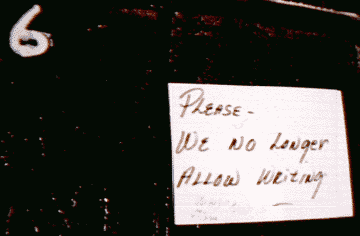 6
PLEASE-
WE NO LONGER
ALLOW WRITING